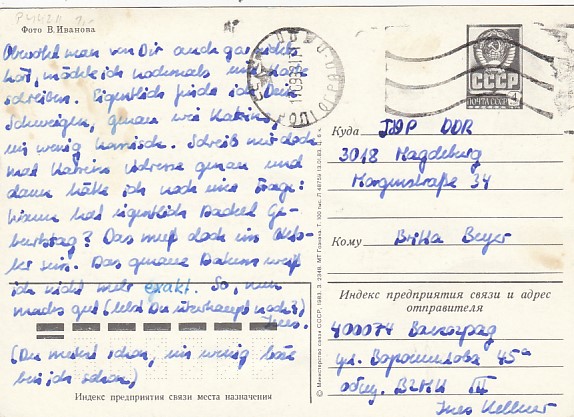 Фото В.Иванова
Obwohl man von Dir auch gar nichts
hört, möchte ich nochmals eine Karte
schreiben. Eigentlich finde ich Dein
Schweigen, genau wie Katrins,
ein wenig komisch. Schreib mir doch
mal Katrins Adresse genau und
dann hätte ich noch eine Frage:
Wann hat eigentlich Bärbel Ge-
burtstag? Das muß doch im Okto-
ber sein. Das genaue Datum weiß
ich nicht mehr exakt. So, nun
machs gut (lebst Du überhaupt noch?)
Ines.
(Du merkst schon, ein wenig böse
bin ich schon)
Индекс предприятия связи места назначения
ПОЧТА СССР
4
СССР
Куда ГДР DDR
3018 Magdeburg
Morgenstraße 34
Кому Britta Beyer
Индекс предприятия связи и адрес
отправителя
400074 Волгоград
ул. Ворошилова 45а
общ. ВГИИ III
Ines Kellner
© Министерство связи СССР, 1983. З. 2348. МТ Гознака. Т. 100 тыс.